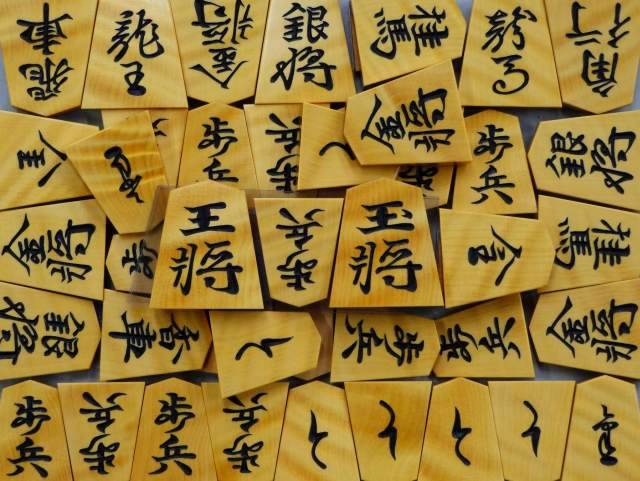 飛車
龍王
金将
銀将
桂馬
龍馬
角行
歩兵
歩兵
金将
歩兵
銀将
金将
王将
歩兵
玉将
金
桂馬
銀将
香車
と
歩兵
歩兵
金将
歩兵
歩兵
歩兵
歩兵
と
と
と
と